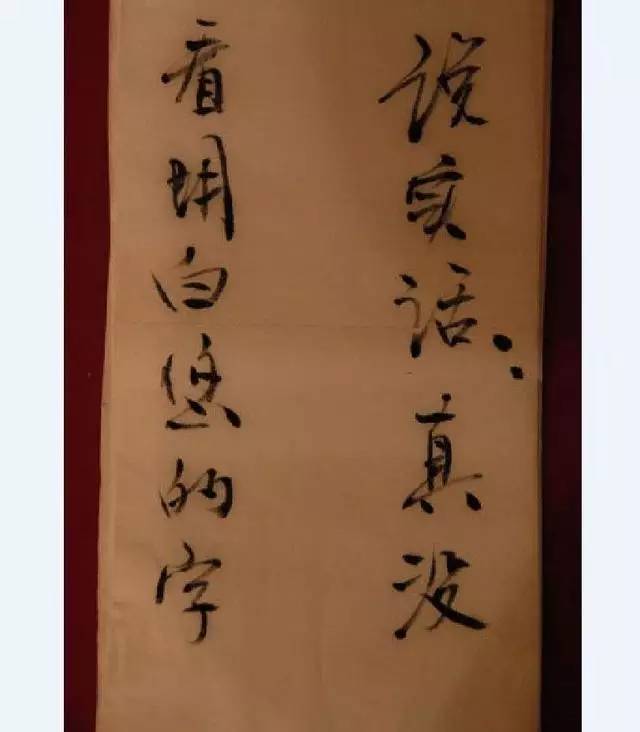 说实话：真没
看明白您的字